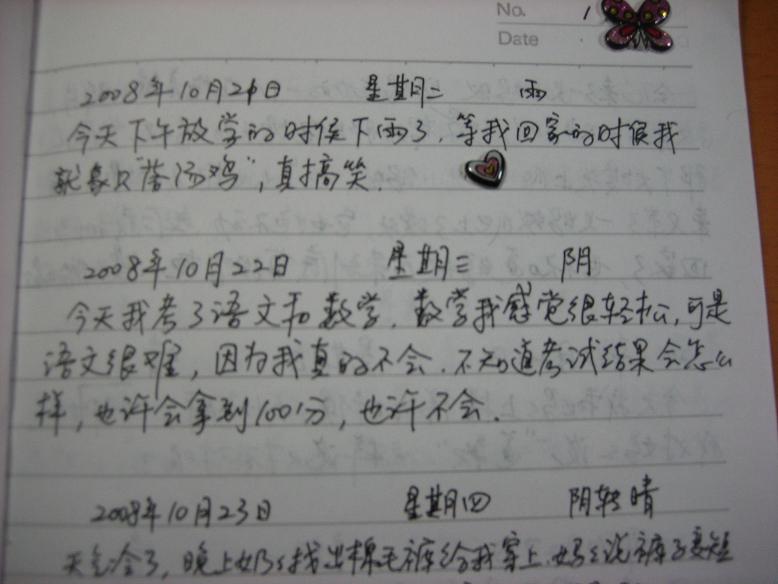 No. 1
Date
2008年10月21日 星期二 雨
今天下午放学的时候下雨了，等我回家的时候我
就象只“落汤鸡”，真搞笑.
2008年10月22日 星期三 阴
今天我考了语文和数学，数学我感觉很轻松，可是
语文很难，因为我真的不会.不知道考试结果会怎么
样，也许会拿到100分，也许不会.
2008年10月23日 星期四 阴转晴
天气冷了，晚上奶々找出棉毛裤给我穿上，妈々说裤子变短